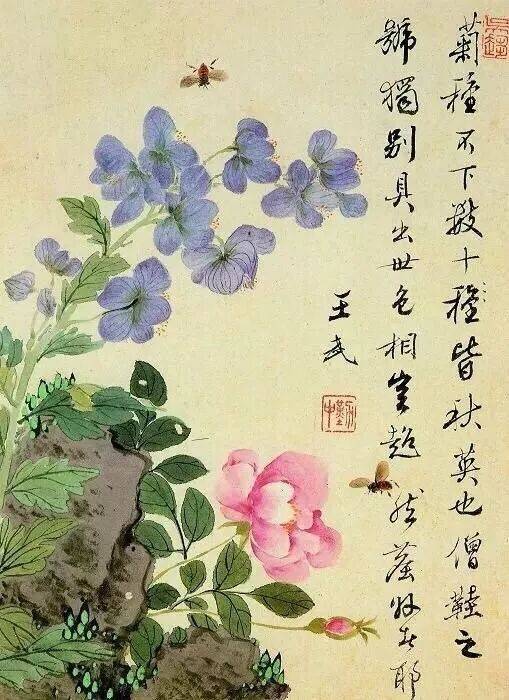 菊種不下數十種皆秋英也僧鞋之
號獨別具出世色相豈超然塵外者耶
王武
勤中